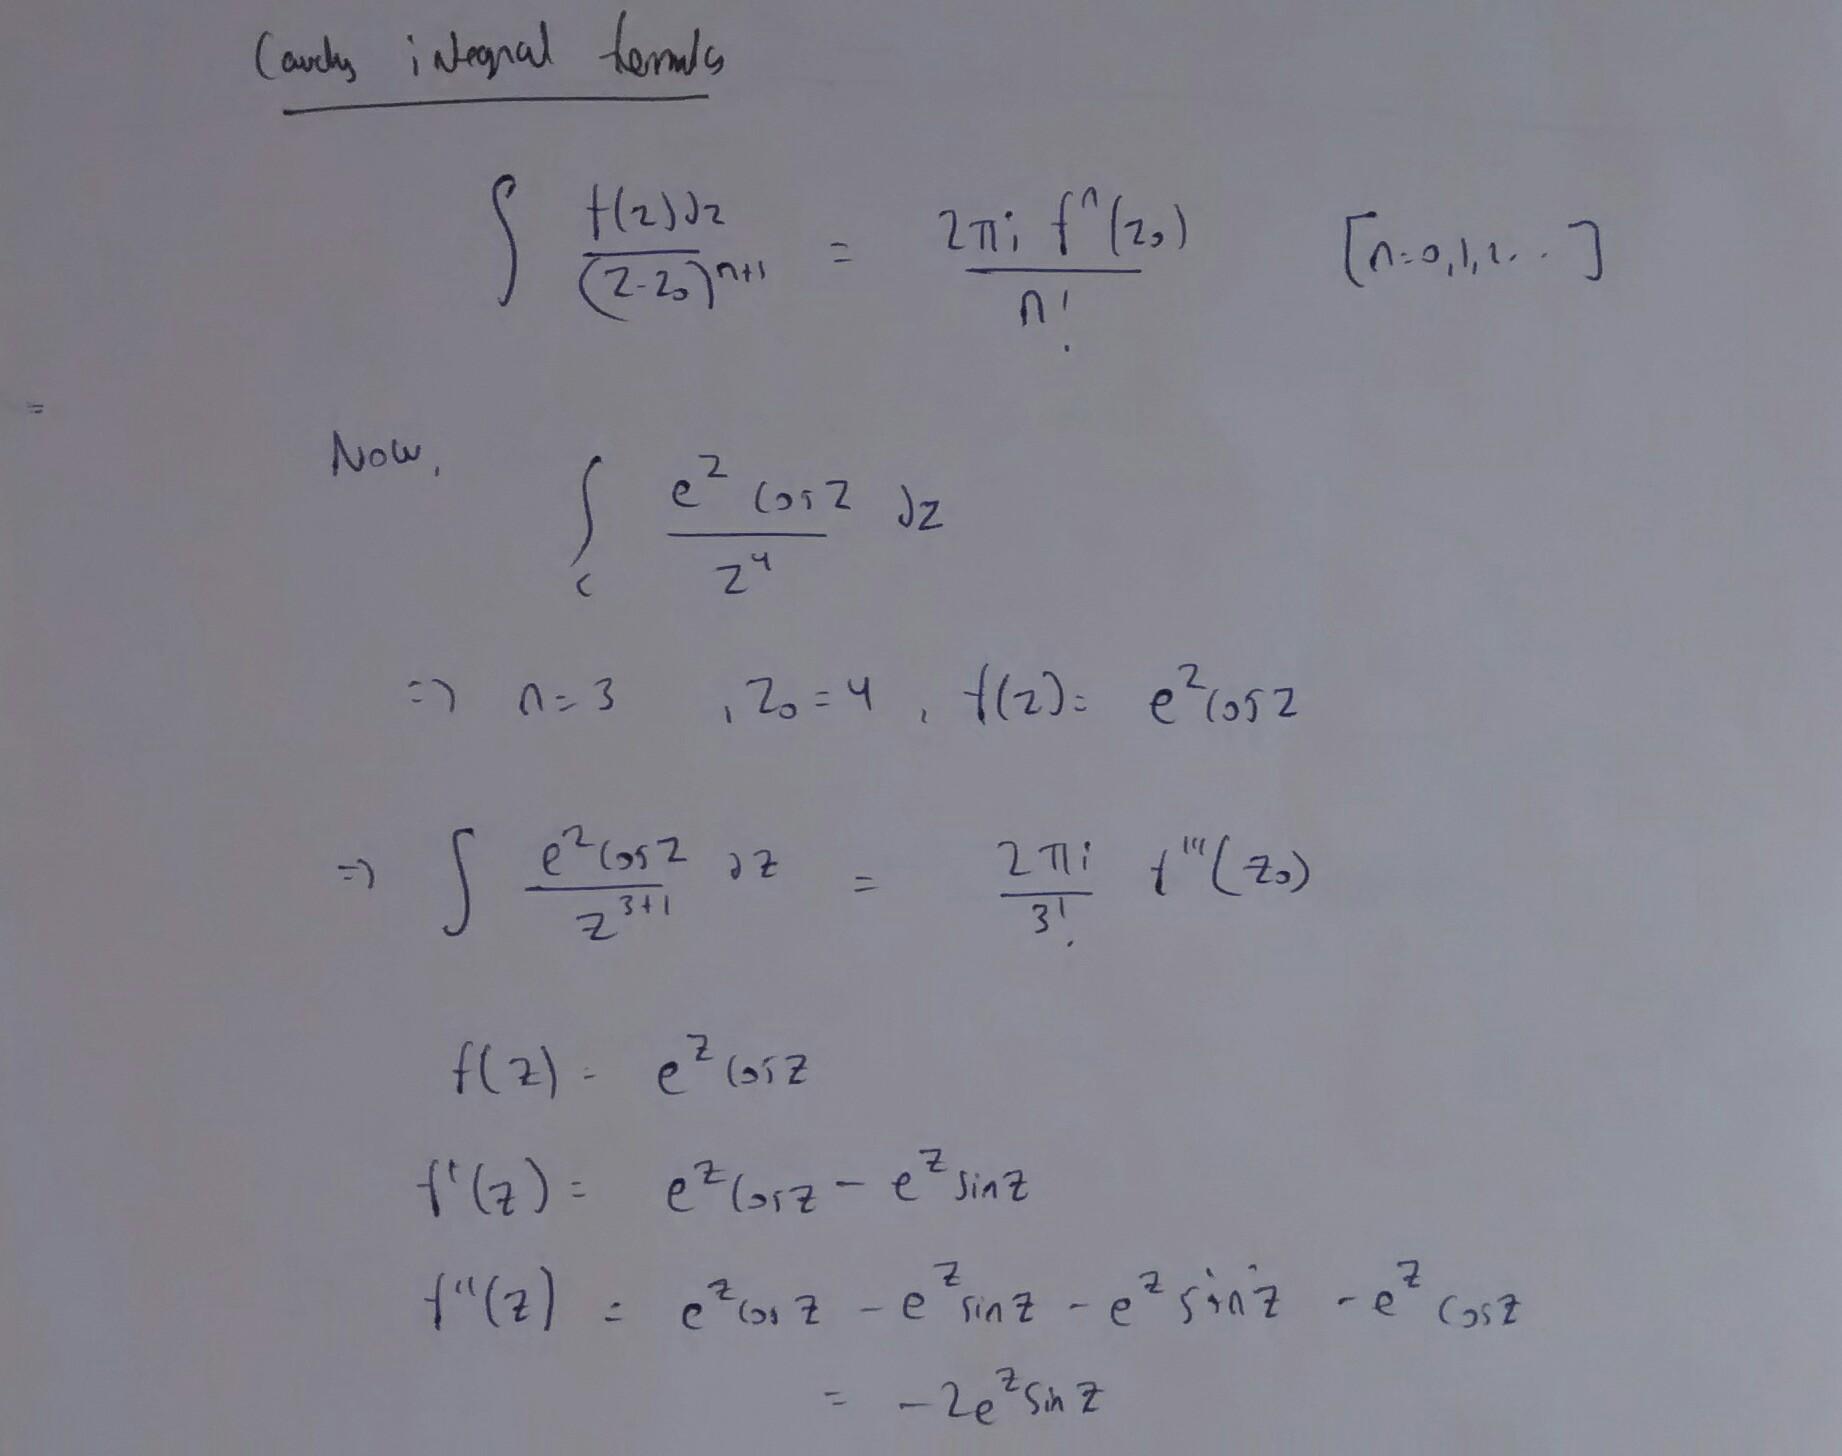 Cauchy integral formula
∫ f(z)dz / (z-z₀)ⁿ⁺¹ = 2πi fⁿ(z₀) / n! [n=0,1,2...]
=
Now, ∫_c e^z cosz / z⁴ dz
=> n=3 , z₀=4 , f(z)= e^z cosz
=> ∫ e^z cosz / z³⁺¹ dz = 2πi / 3! f'''(z₀)
f(z)= e^z cosz
f'(z)= e^z cosz - e^z sinz
f''(z) = e^z cosz - e^z sinz - e^z sinz - e^z cosz
= -2e^z sinz